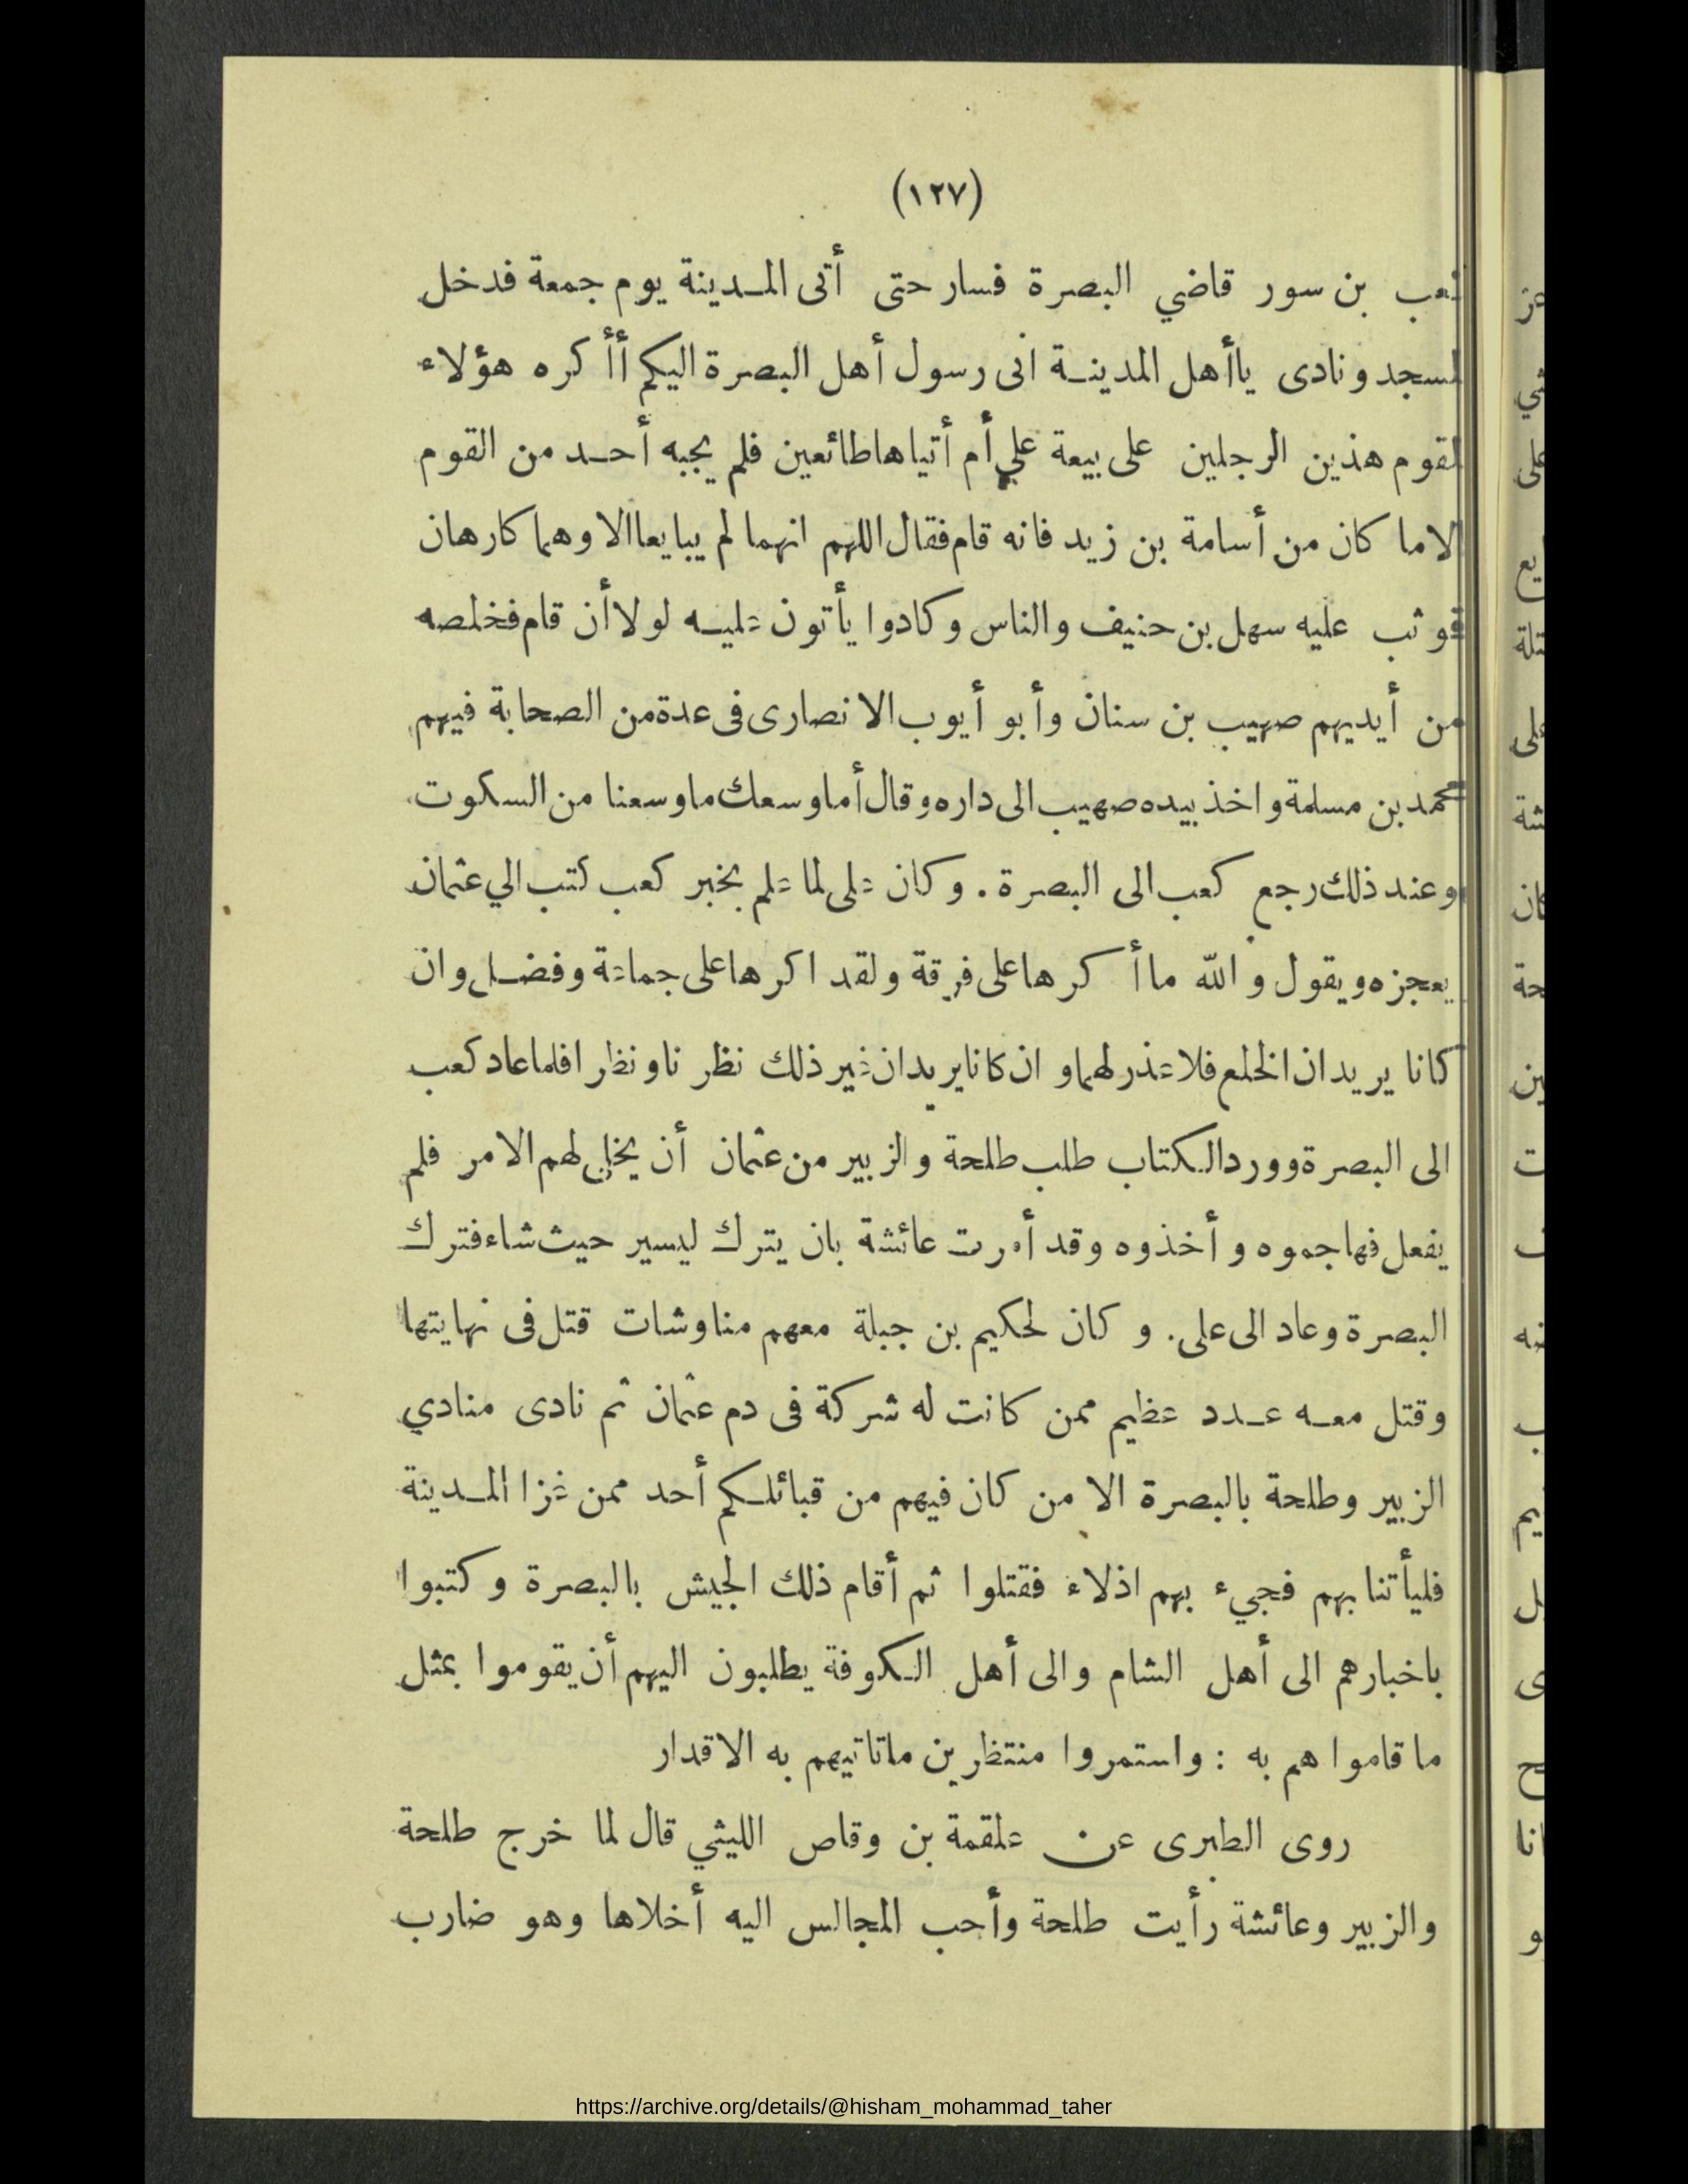 (١٢٧)
كعب بن سور قاضي البصرة فسار حتى أتى المدينة يوم جمعة فدخل
المسجد ونادى ياأهل المدينة انى رسول أهل البصرة اليكم أأ كره هؤلاء
القوم هذين الرجلين على بيعة علي أم أتياها طائعين فلم يجبه أحد من القوم
الا ما كان من أسامة بن زيد فانه قام فقال اللهم انهما لم يبايعا الا وهما كارهان
فوثب عليه سهل بن حنيف والناس وكادوا يأتون عليه لولا أن قام فخلصه
من أيديهم صهيب بن سنان وأبو أيوب الانصارى فى عدة من الصحابة فيهم
محمد بن مسلمة واخذ بيده صهيب الى داره وقال أما وسعك ما وسعنا من السكوت
وعند ذلك رجع كعب الى البصرة . وكان على لما علم بخبر كعب كتب الي عثمان
يعجزه ويقول والله ما أ كرها على فرقة ولقد اكرها على جماعة وفضل وان
كانا يريدان الخلع فلا عذر لهما وان كانا يريدان غير ذلك نظر نا ونظرا فلما عاد كعب
الى البصرة وورد الكتاب طلب طلحة والزبير من عثمان أن يخلى لهم الامر فلم
يفعل فهاجموه وأخذوه وقد أمرت عائشة بان يترك ليسير حيث شاء فترك
البصرة وعاد الى على . و كان لحكيم بن جبلة معهم مناوشات قتل فى نهايتها
وقتل معه عدد عظيم ممن كانت له شركة فى دم عثمان ثم نادى منادي
الزبير وطلحة بالبصرة الا من كان فيهم من قبائلكم أحد ممن غزا المدينة
فليأتنا بهم فجيء بهم اذلاء فقتلوا ثم أقام ذلك الجيش بالبصرة وكتبوا
باخبارهم الى أهل الشام والى أهل الكوفة يطلبون اليهم أن يقوموا بمثل
ما قاموا هم به : واستمروا منتظرين ماتاتيهم به الاقدار
روى الطبرى عن علقمة بن وقاص الليثي قال لما خرج طلحة
والزبير وعائشة رأيت طلحة وأحب المجالس اليه أخلاها وهو ضارب
https://archive.org/details/@hisham_mohammad_taher